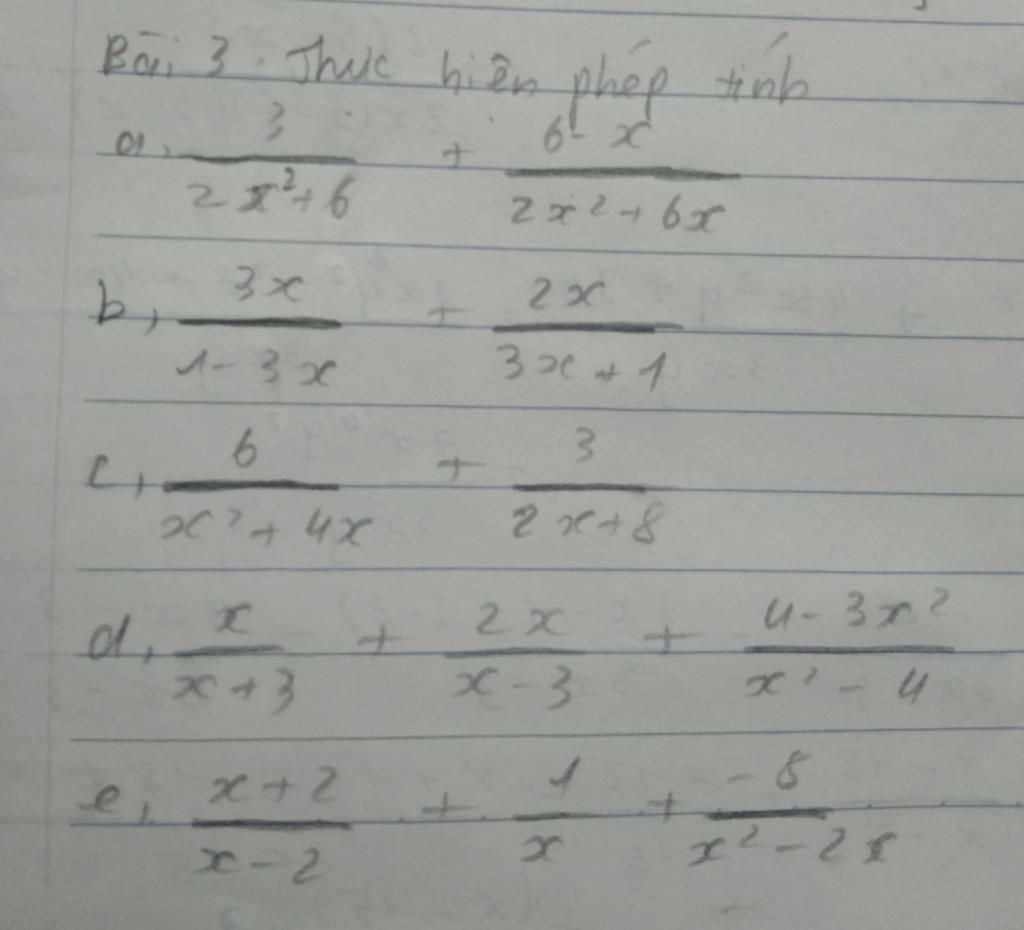 Bài 3. Thực hiện phép tính
a, 3/(2x²+6) + (6-x)/(2x²+6x)
b, 3x/(1-3x) + 2x/(3x+1)
c, 6/(x²+4x) + 3/(2x+8)
d, x/(x+3) + 2x/(x-3) + (4-3x²)/(x²-4)
e, (x+2)/(x-2) + 1/x + (-8)/(x²-2x)